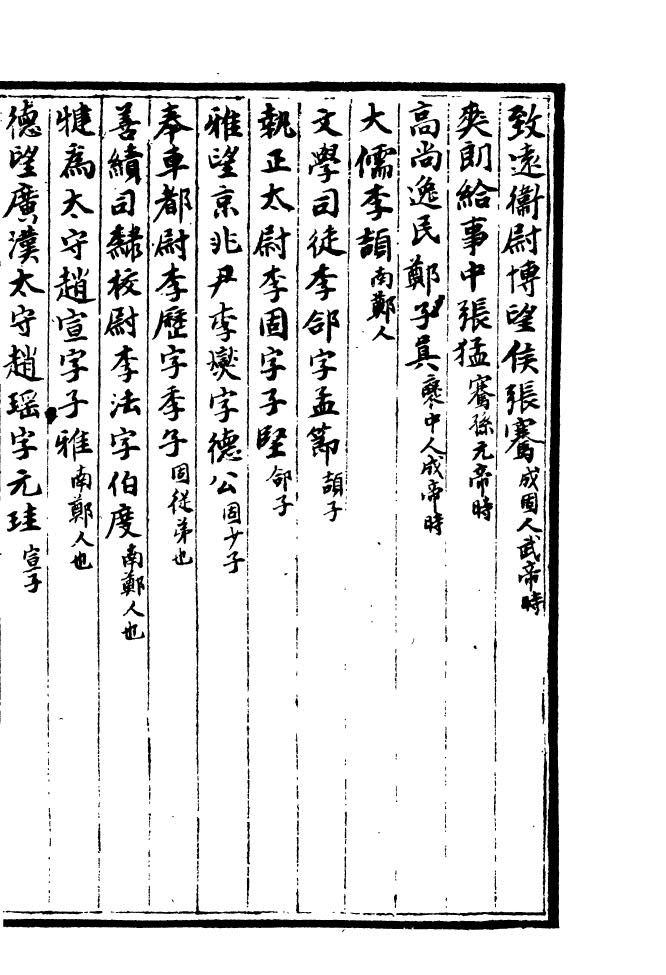 致遠衞尉博望侯張騫成固人武帝時
爽朗給事中張猛騫孫元帝時
高尚逸民鄭子真褒中人成帝時
大儒李頡南鄭人
文學司徒李郃字孟節頡子
執正太尉李固字子堅郃子
雅望京兆尹李燮字德公固少子
奉車都尉李歷字季子固從弟也
善績司隸校尉李法字伯度南鄭人也
犍爲太守趙宣字子雅南鄭人也
德望廣漢太守趙瑶字元珪宣子